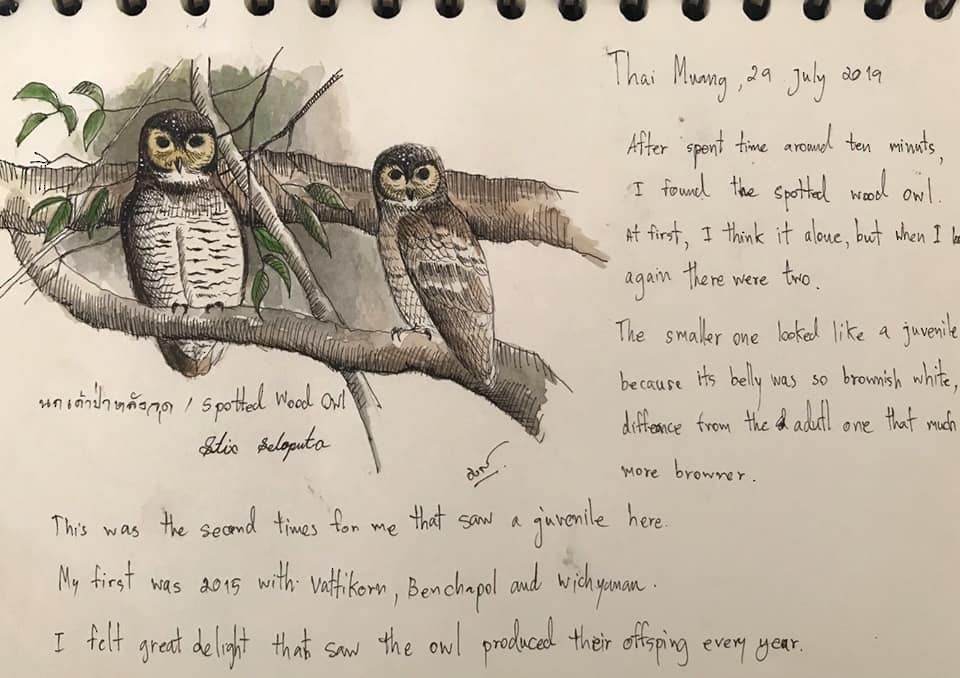 Thai Muang, 29 July 2019
After spent time around ten minuts,
I found the spotted wood owl.
At first, I think it alone, but when I
again there were two.
The smaller one looked like a juvenile
because its belly was so brownish white,
diffence from the adutl one that much
more browner.
นกเค้าป่าหลังจุด / Spotted Wood Owl
Stix seloputa
This was the second times for me that saw a juvenile here.
My first was 2015 with Vattikorn, Benchapol and Wichyanan.
I felt great delight that saw the owl produced their offsping every year.